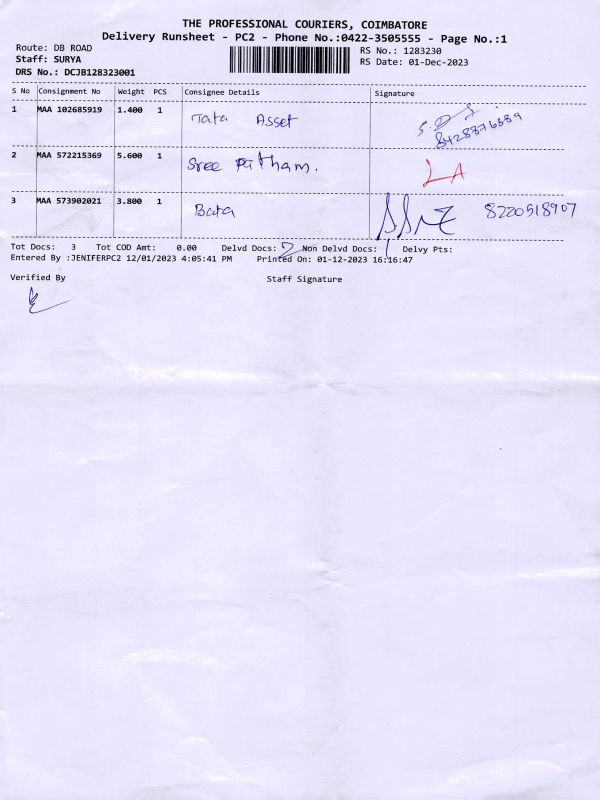 THE PROFESSIONAL COURIERS, COIMBATORE
Delivery Runsheet - PC2 - Phone No.:0422-3505555 - Page No.:1
Route: DB ROAD
RS No.: 1283230
Staff: SURYA
RS Date: 01-Dec-2023
DRS No.: DCJB128323001
S No Consignment No Weight PCS Consignee Details Signature
1 MAA 102685919 1.400 1 Tata Asset
2 MAA 572215369 5.600 1 Sree Patham. LA
3 MAA 573902021 3.800 1 Bata 8220518907
Tot Docs: 3 Tot COD Amt: 0.00 Delvd Docs: 2 Non Delvd Docs: 1 Delvy Pts:
Entered By :JENIFERPC2 12/01/2023 4:05:41 PM Printed On: 01-12-2023 16:16:47
Verified By Staff Signature